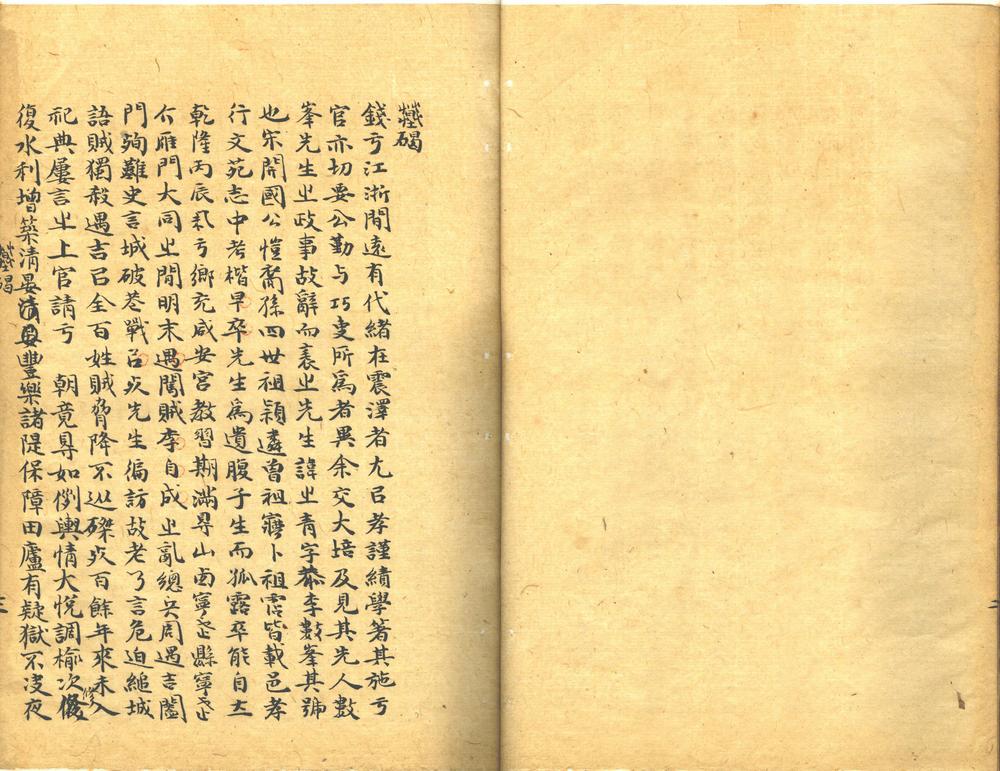 碣
錢亏江浙閒遠有代緒在震澤者尤㠯孝謹績學著其施亏
官亦切要公勤与巧吏所爲者異余交大培及見其先人數
峯先生㞢政事故辭而表㞢先生諱㞢青字恭李數峯其號
也宋開國公愷裔孫四世祖穎遴曾祖寢卜祖霑皆載邑孝
行文苑志中考楷早卒先生爲遺腹子生而狐露卒能自立
乾隆丙辰亏鄉充咸安宮教習期滿㝵山西寧武縣寧武
介雁門大同㞢閒明末遇闖賊李自成㞢亂總兵周遇吉闔
門殉難史言城破巷戰㠯死先生徧訪故老乃言危迫縋城
語賊獨殺遇吉㠯全百姓賊脅降不從磔死百餘年來未入
祀典屢言㞢上官請亏　朝竟㝵如例輿情大悅調榆次修
復水利增築清晏豐樂諸隄保障田廬有疑獄不決夜
碣
三